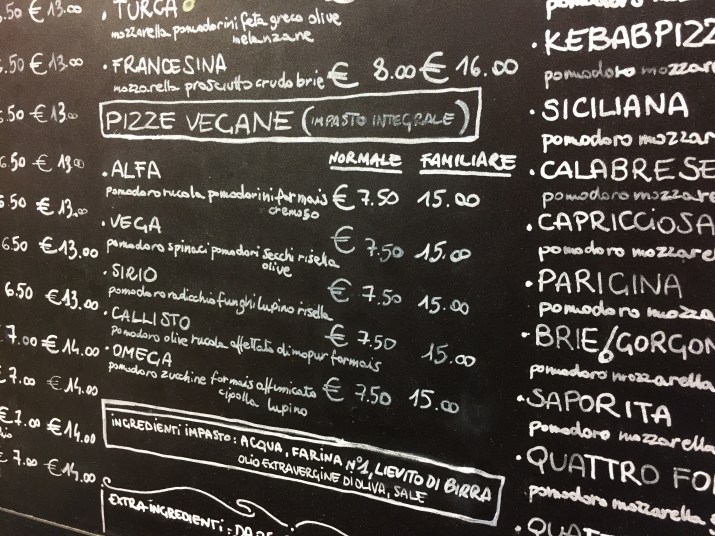 .50 € 13.00
6.50 € 13.00
6.50 € 13.00
6.50 € 13.00
6.50 € 13.00
6.50 € 13.00
6.50 € 13.00
7.00 € 14.00
€ 7.00 € 14.00
€ 7.00 € 14.00
€ 7.00 € 14.00
• TURCA
mozzarella pomodorini feta greco olive
melanzane
• FRANCESINA € 8.00 € 16.00
mozzarella prosciutto crudo brie
PIZZE VEGANE (IMPASTO INTEGRALE)
NORMALE FAMILIARE
• ALFA
pomodoro rucola pomodorini formais € 7.50 15.00
cremoso
• VEGA
pomodoro spinaci pomodori secchi risella € 7.50 15.00
olive
• SIRIO
pomodoro radicchio funghi lupino risella € 7.50 15.00
• CALLISTO
pomodoro olive rucola affettato di mopur formais € 7.50 15.00
• OMEGA
pomodoro zucchine formais affumicato € 7.50 15.00
cipolla lupino
INGREDIENTI IMPASTO: ACQUA, FARINA N°1, LIEVITO DI BIRRA
OLIO EXTRAVERGINE DI OLIVA, SALE
EXTRA-INGREDIENTI: DA
• KEBABPIZZ
pomodoro mozzar
• SICILIANA
pomodoro mozzar
• CALABRESE
pomodoro mozzar
• CAPRICCIOSA
pomodoro mozzarel
• PARIGINA
pomodoro mozzar
• BRIE/GORGON
pomodoro mozzarella
• SAPORITA
pomodoro mozzarella
• QUATTRO FO
pomodoro mozzarella
• QUATT